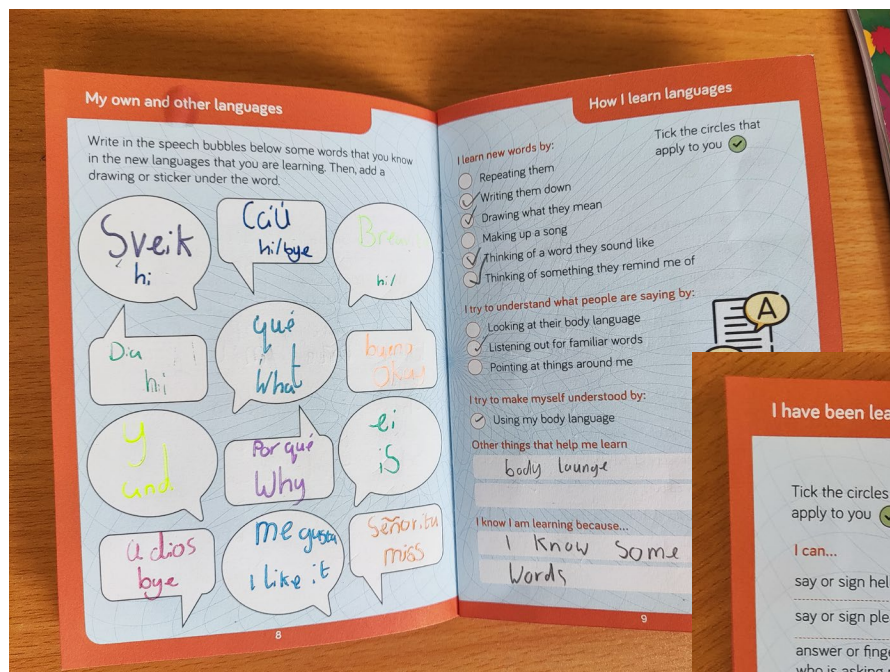 My own and other languages
Write in the speech bubbles below some words that you know
in the new languages that you are learning. Then, add a
drawing or sticker under the word.
Sveik
hi
Caú
hi/bye
hi/
Dia
hi
qué
what
bueno
Okay
y
and
Por qué
Why
ei
is
adios
bye
me gusta
I like it
Señorita
miss
8
How I learn languages
Tick the circles that
apply to you
I learn new words by:
Repeating them
Writing them down
Drawing what they mean
Making up a song
Thinking of a word they sound like
Thinking of something they remind me of
I try to understand what people are saying by:
Looking at their body language
Listening out for familiar words
Pointing at things around me
A
I try to make myself understood by:
Using my body language
Other things that help me learn
body launge
I know I am learning because...
I know some
Words
9
I have been lea
Tick the circles
apply to you
I can...
say or sign hel
say or sign ple
answer or finge
who is asking